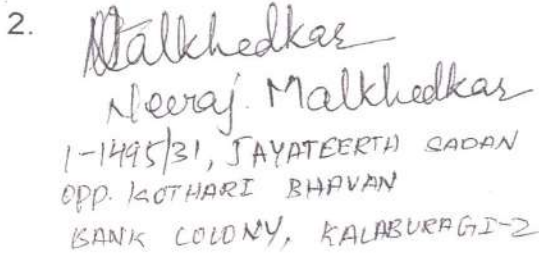 2.
NMalkhedkar
Neeraj. Malkhedkar
1-1495/31, JAYATEERTH SADAN
OPP. KOTHARI BHAVAN
BANK COLONY, KALABURAGI-2